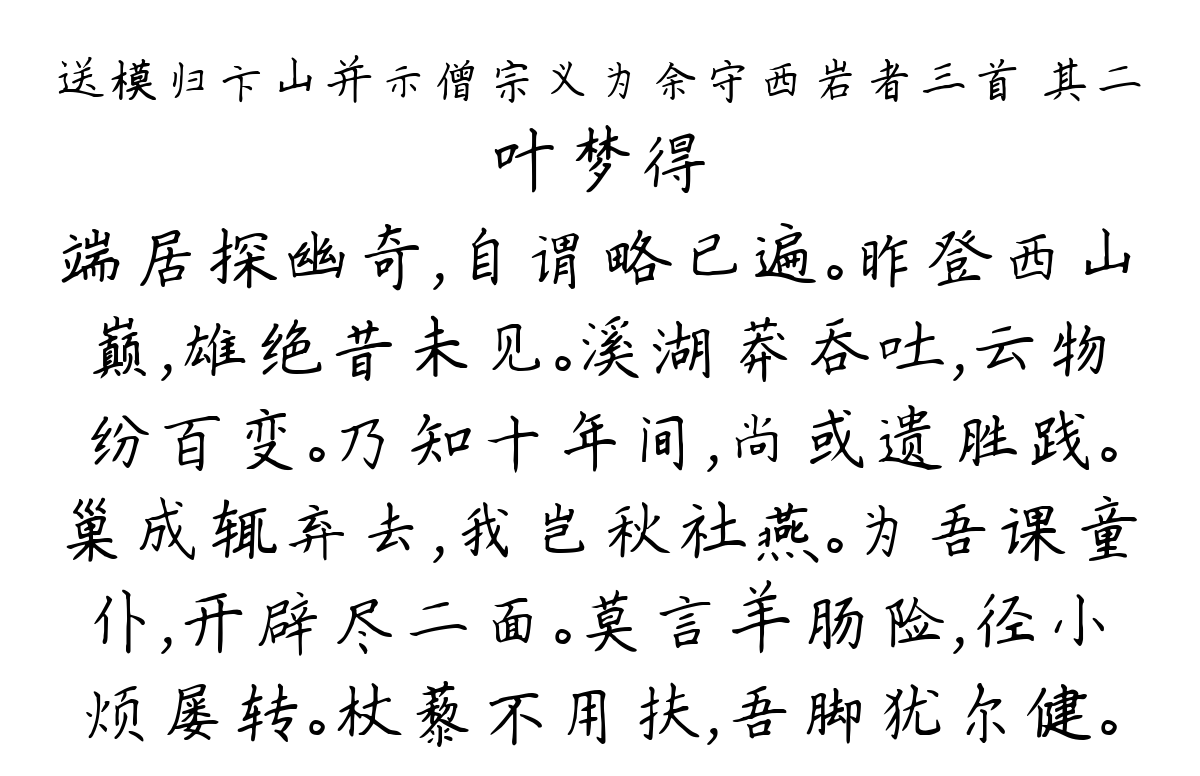 送模归卞山并示僧宗义为余守西岩者三首 其二
叶梦得
端居探幽奇,自谓略已遍。昨登西山
巅,雄绝昔未见。溪湖莽吞吐,云物
纷百变。乃知十年间,尚或遗胜践。
巢成辄弃去,我岂秋社燕。为吾课童
仆,开辟尽二面。莫言羊肠险,径小
烦屡转。杖藜不用扶,吾脚犹尔健。